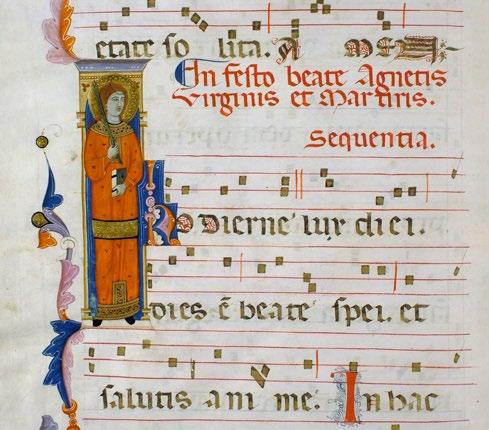 etate so lita. A men.
In festo beate Agnetis
virginis et Martiris.
Sequentia.
Hodierne lux diei.
dies ē beate spei. et
salutis ani me. In hac